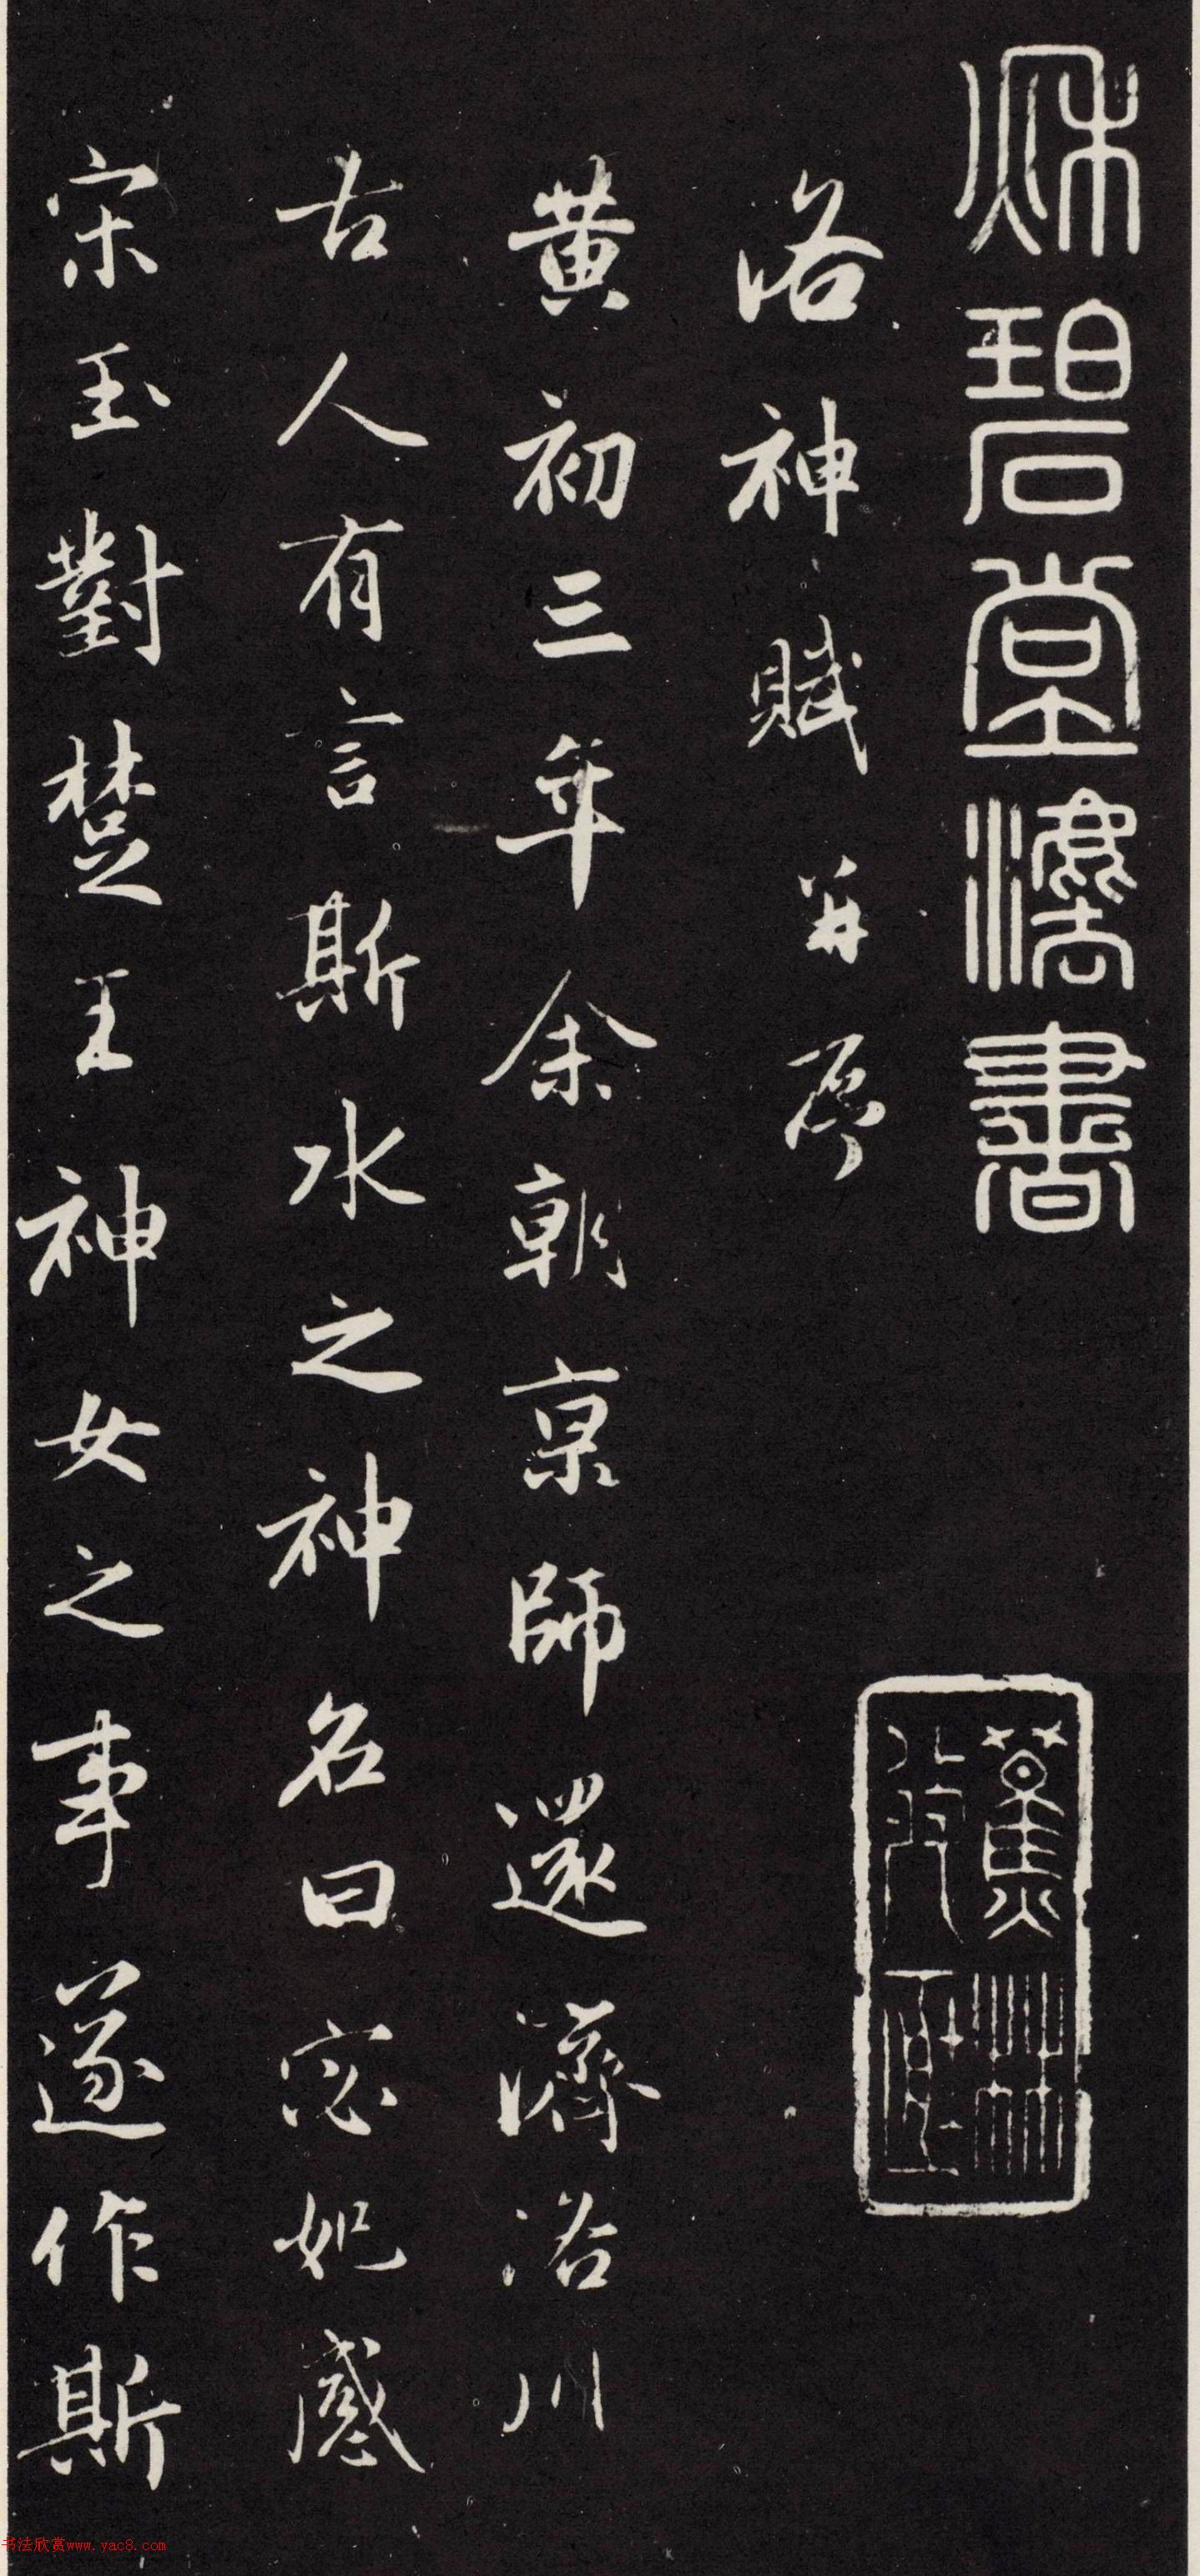 秋碧堂法書
洛神賦并序
黃初三年余朝京師還濟洛川
古人有言斯水之神名曰宓妃感
宋玉對楚王神女之事遂作斯
蕉林
书法欣赏www.yac8.com